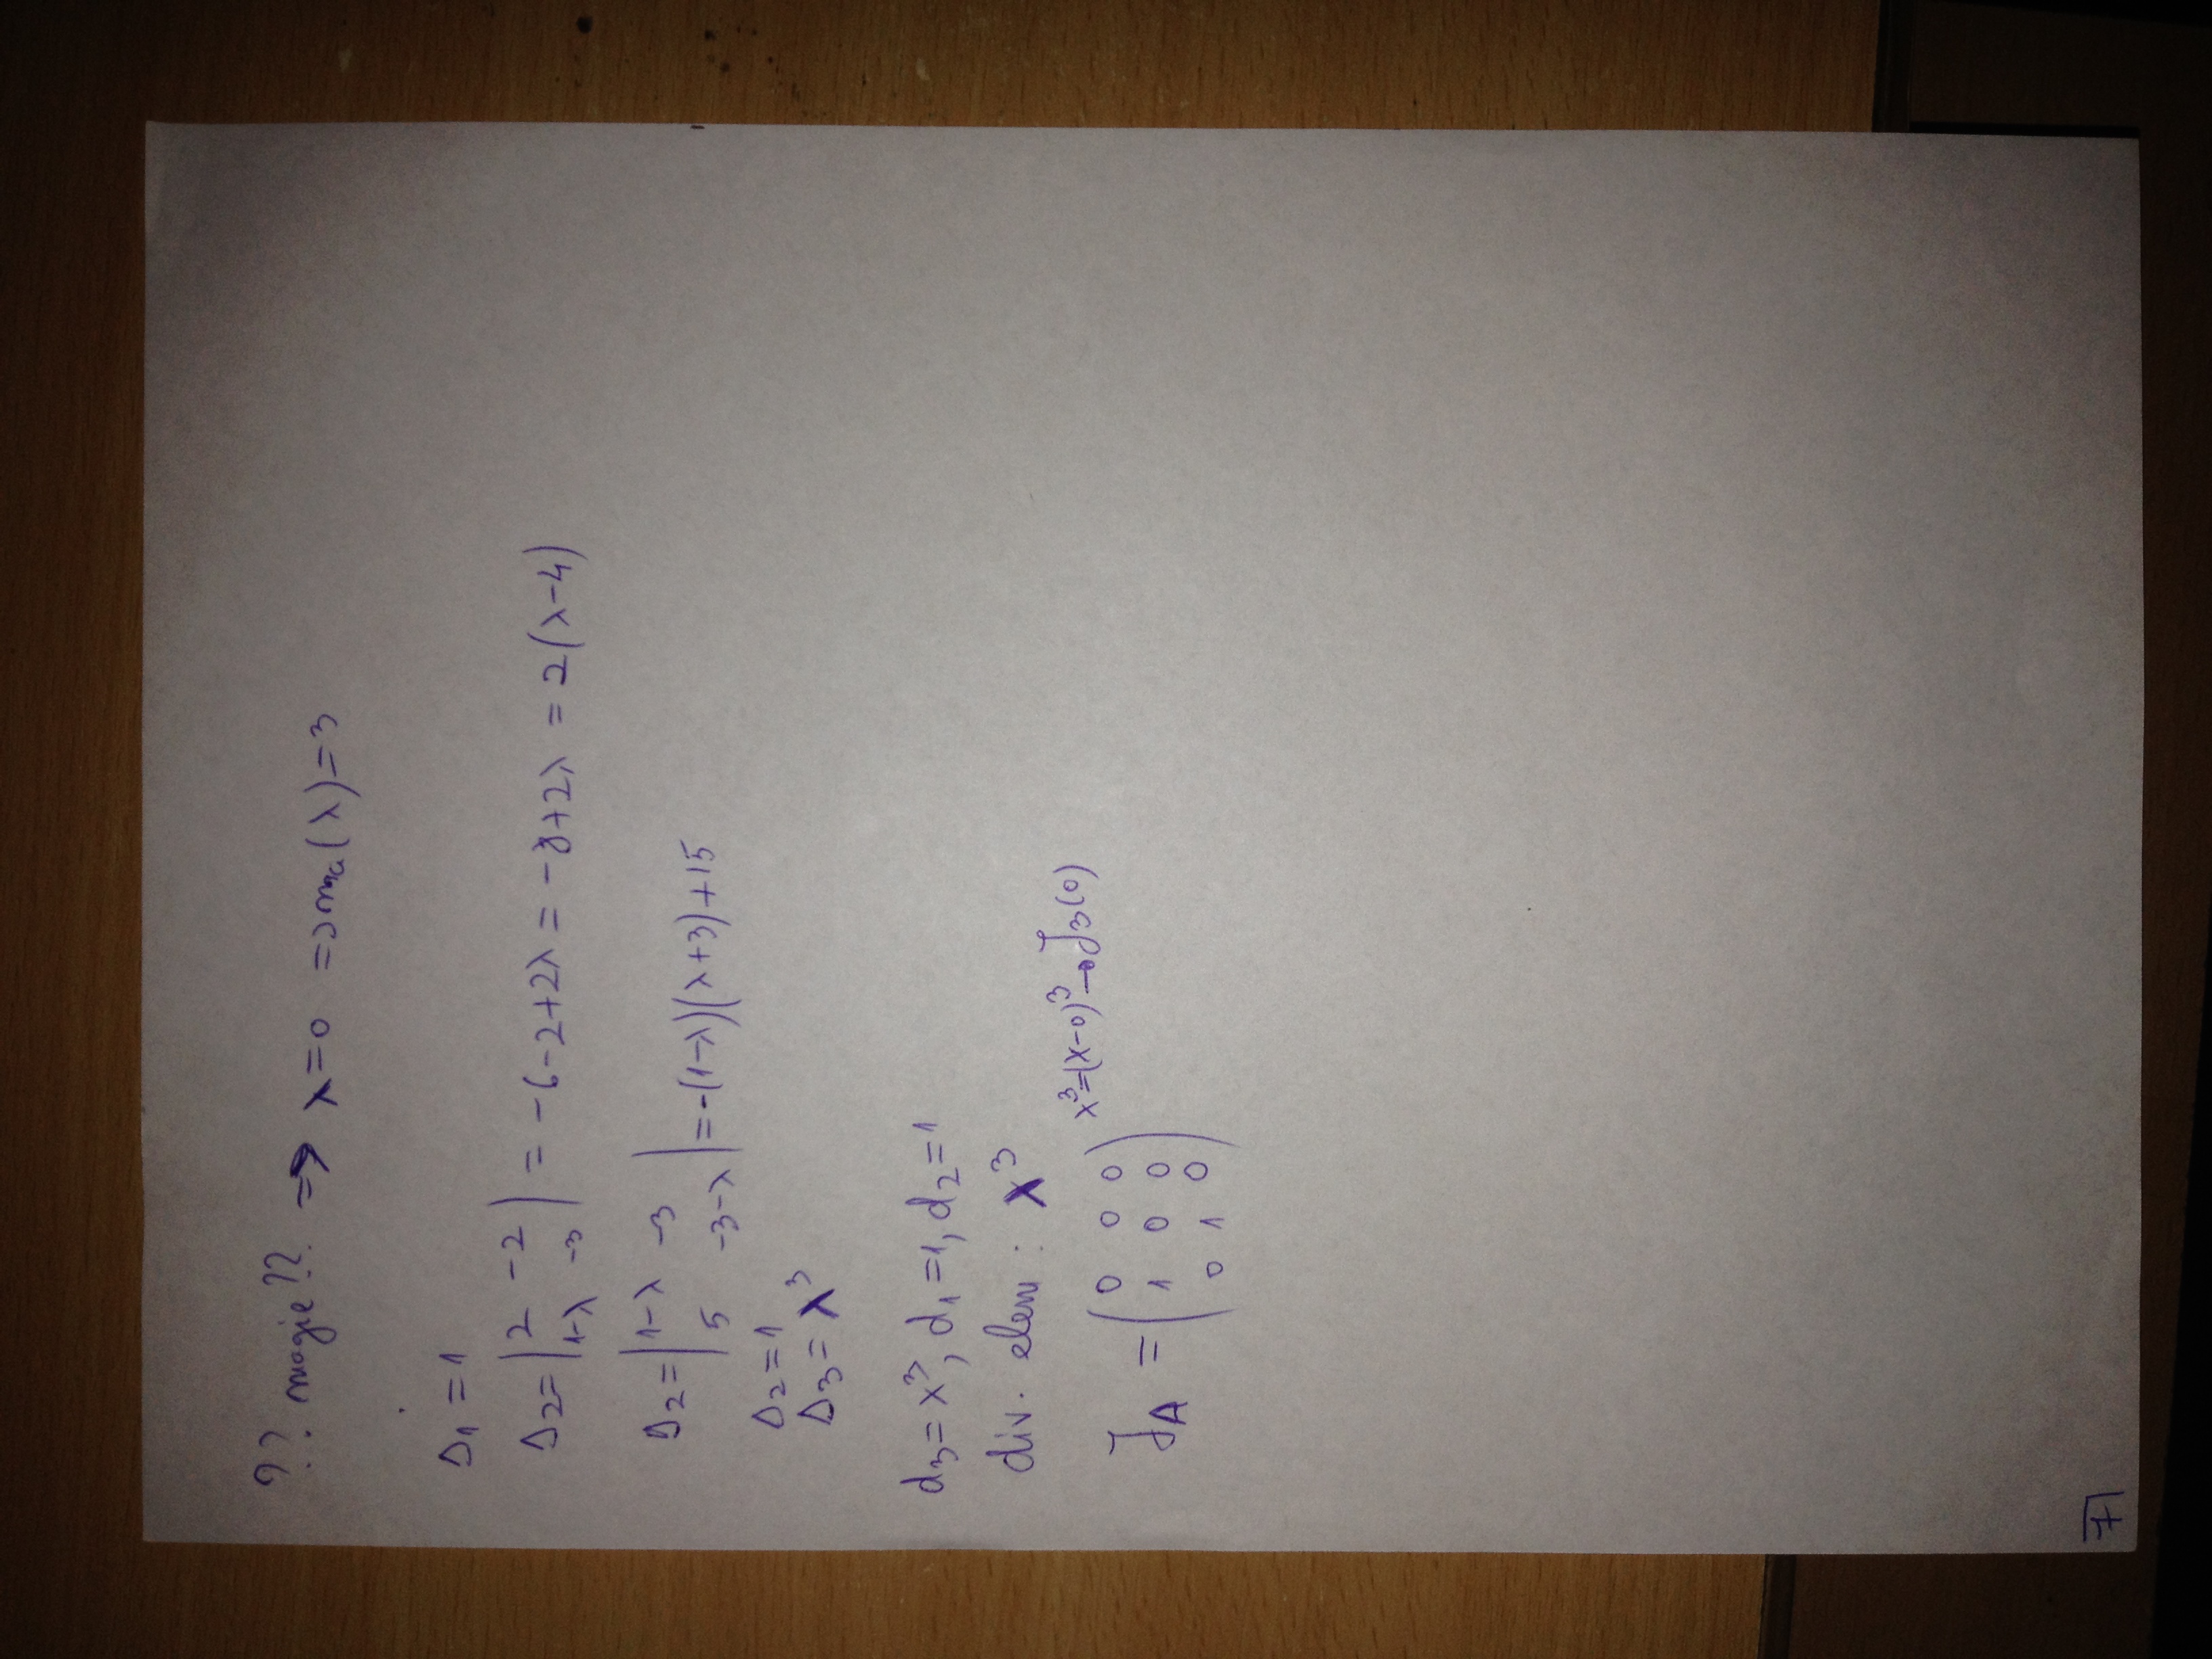 ?? magie?? => λ=0 => ma(λ)=3
Δ₁ = 1
Δ₂= |2 -2; 1-λ -3| = -6-2+2λ = -8+2λ = 2(λ-4)
Δ₂= |1-λ -3; 5 -3-λ| = -(1-λ)(λ+3)+15
Δ₂=1
Δ₃= λ³
d₃= x³, d₁=1, d₂=1
div. elem : x³
x³=(x-0)³→J₃(0)
J_A = (0 0 0
1 0 0
0 1 0)
7